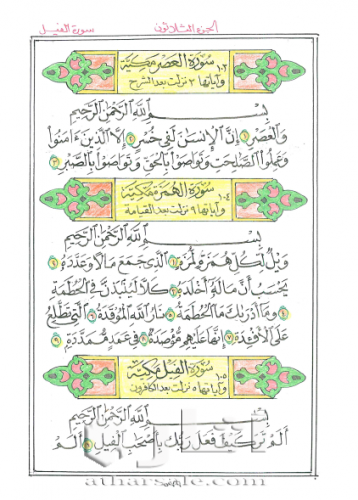 الجزء الثلاثون سورة الفيل
١٠٣ سورة العصر مكية
وآياتها ٣ نزلت بعد الشرح
بسم الله الرحمن الرحيم
والعصر ١ إن الإنسن لفي خسر ٢ إلا الذين ءامنوا
وعملوا الصلحت وتواصوا بالحق وتواصوا بالصبر ٣
١٠٤ سورة الهمزة مكية
وآياتها ٩ نزلت بعد القيامة
بسم الله الرحمن الرحيم
ويل لكل همزة لمزة ١ الذي جمع مالا وعدده ٢
يحسب أن ماله أخلده ٣ كلا لينبذن في الحطمة
٤ وما أدرىك ما الحطمة ٥ نار الله الموقدة ٦ التي تطلع
على الأفـدة ٧ إنها عليهم مؤصدة ٨ في عمد ممددة ٩
١٠٥ سورة الفيل مكية
وآياتها ٥ نزلت بعد الكافرون
بسم الله الرحمن الرحيم
ألم تر كيف فعل ربك بأصحب الفيل ١ ألم
atharsale.com